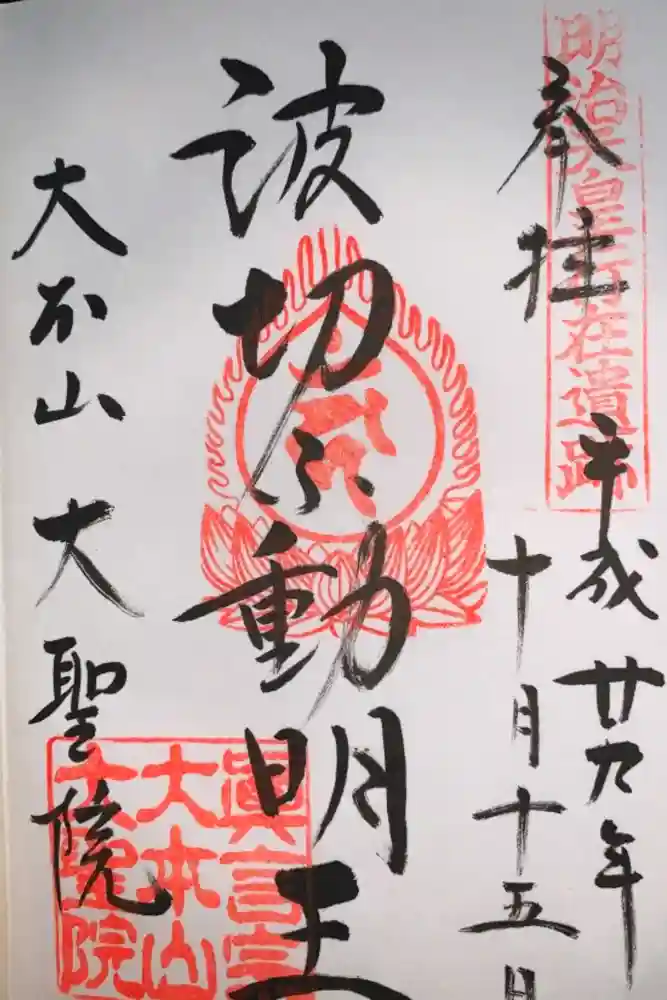 明治天皇行在遺跡
奉拝
平成廿九年
十月十五日
波切不動明王
大本山大聖院
眞言宗
大本山
大聖院